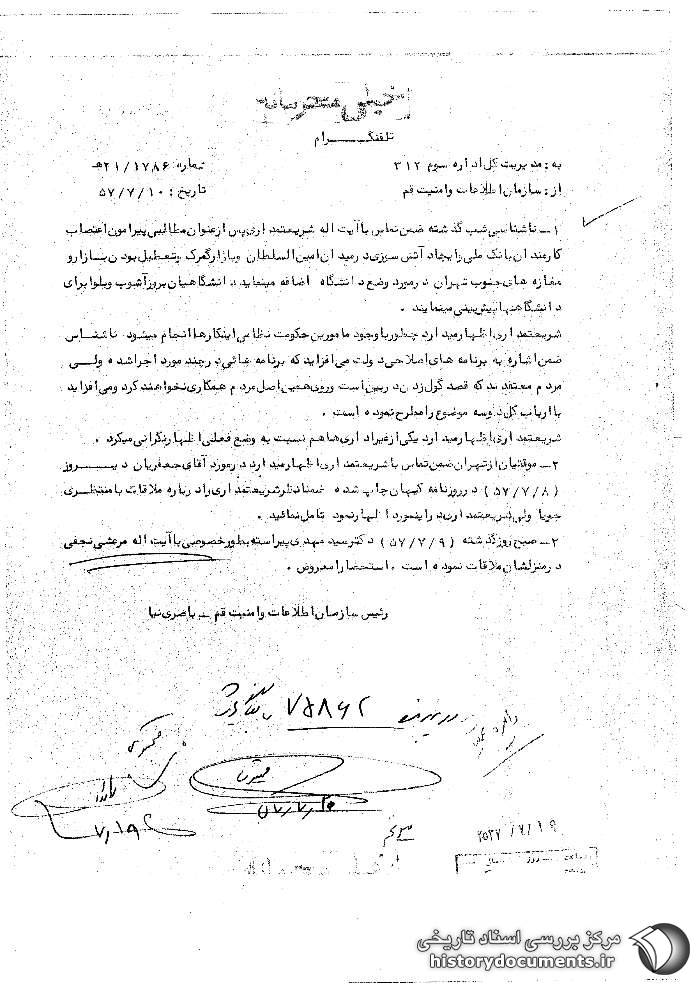 خیلی محرمانه
تلفنگرام
به : مدیریت کل اداره سوم ۳۱۲
شماره : ۲۱/۱۷۸۶ هـ
از : سازمان اطلاعات وامنیت قم
تاریخ : ۵۷/۷/۱۰
۱ ــ ناشناسی شب گذشته ضمن تماس باآیت اله شریعتمد اری پس ازعنوان مطالبی پیرامون اعتصاب
کارمند ان بانک ملی وایجاد آتش سوزی د رمید ان امین السلطان وبازارگمرک وتعطیل بود ن بازارو
مغازه های جنوب تهران د رمورد وضع د انشگاه اضافه مینماید د انشگاهیان بروزآشوب وبلوا برای
د انشگاههاپیش بینی مینمایند .
شریعتمد اری اظهارمید ارد چطورباوجود مامورین حکومت نظامی اینکارهاانجام میشود ناشناس
ضمن اشاره به برنامه های اصلاحی د ولت می افزاید که برنامه هائی د رچند مورد اجراشد ه ولــی
مرد م معتقد ند که قصد گول زد ن د ربین است وروی همین اصل مرد م همکاری نخواهند کرد ومی افزاید
باارباب کل د وسه موضوع رامطرح نمود ه است .
شریعتمد اری اظهارمید ارد یکی ازفرماند اری هاهم نسبت به وضع فعلی اظهارنگرانی میکرد .
۲ ــ موقنیان ازتهران ضمن تماس باشریعتمد اری اظهارمید ارد د رمورد آقای جعفریان د یـــروز
(۵۷/۷/۸) د رروزنامه کیهان چاپ شد ه ضمنا نظرشریعتمد اری راد رباره ملاقات بامنتظـری
جویا ولی شریعتمد اری د راینمورد اظهارنمود تامل نمائید .
۳ ــ صبح روزگذشته (۵۷/۷/۹) د کترسید مهد ی پیراسته بطورخصوصی باآیت اله مرعشی نجفی
د رمنزلشان ملاقات نمود ه است . استحضارا معروض .
رئیس سازمان اطلاعات وامنیت قم ــ
۷۵۸۶۲
۲۵۳۷/۷/۱۹
مرکز بررسی اسناد تاریخی
historydocuments.ir